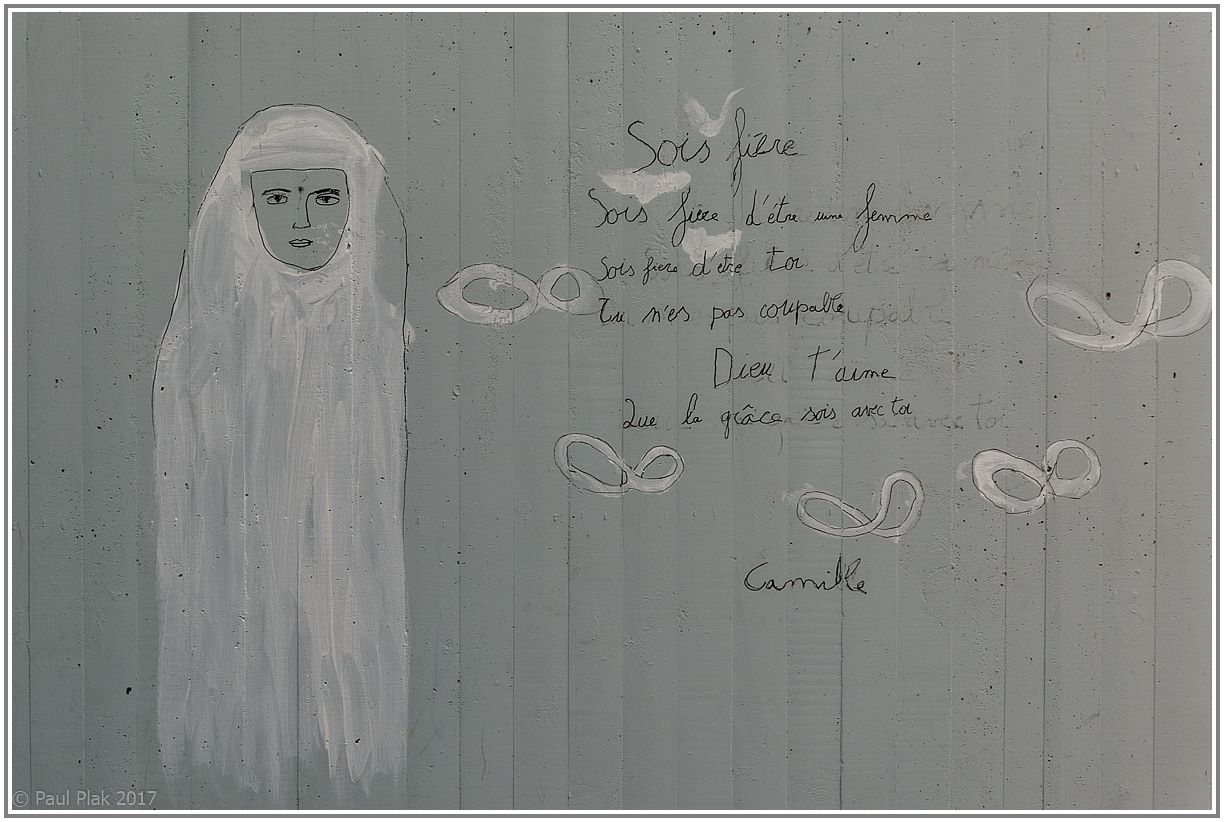 Sois fière
Sois fière d'être une femme
Sois fière d'être toi
Tu n'es pas coupable
Dieu t'aime
Que la grâce sois avec toi
Camille
© Paul Plak 2017